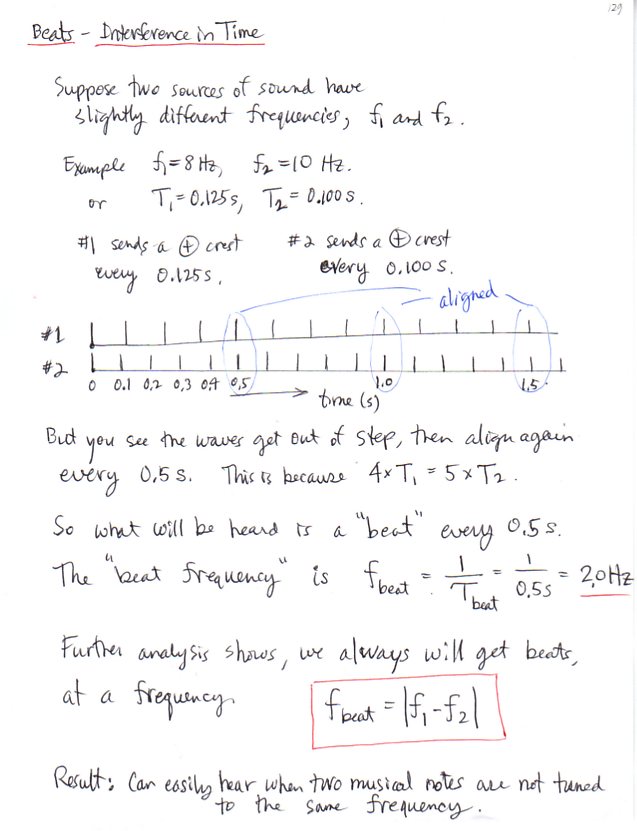 129
Beats - Interference in Time
Suppose two sources of sound have
slightly different frequencies, f₁ and f₂.
Example f₁=8 Hz, f₂=10 Hz.
or T₁=0.125s, T₂=0.100s.
#1 sends a ⊕ crest
every 0.125s.
#2 sends a ⊕ crest
every 0.100s.
aligned
#1
#2
0 0.1 0.2 0.3 0.4 0.5 1.0 1.5
time (s)
But you see the waves get out of step, then align again
every 0.5s. This is because 4×T₁ = 5×T₂.
So what will be heard is a "beat" every 0.5s.
The "beat frequency" is f_beat = 1/T_beat = 1/0.5s = 2.0Hz
Further analysis shows, we always will get beats,
at a frequency
f_beat = |f₁-f₂|
Result: Can easily hear when two musical notes are not tuned
to the same frequency.